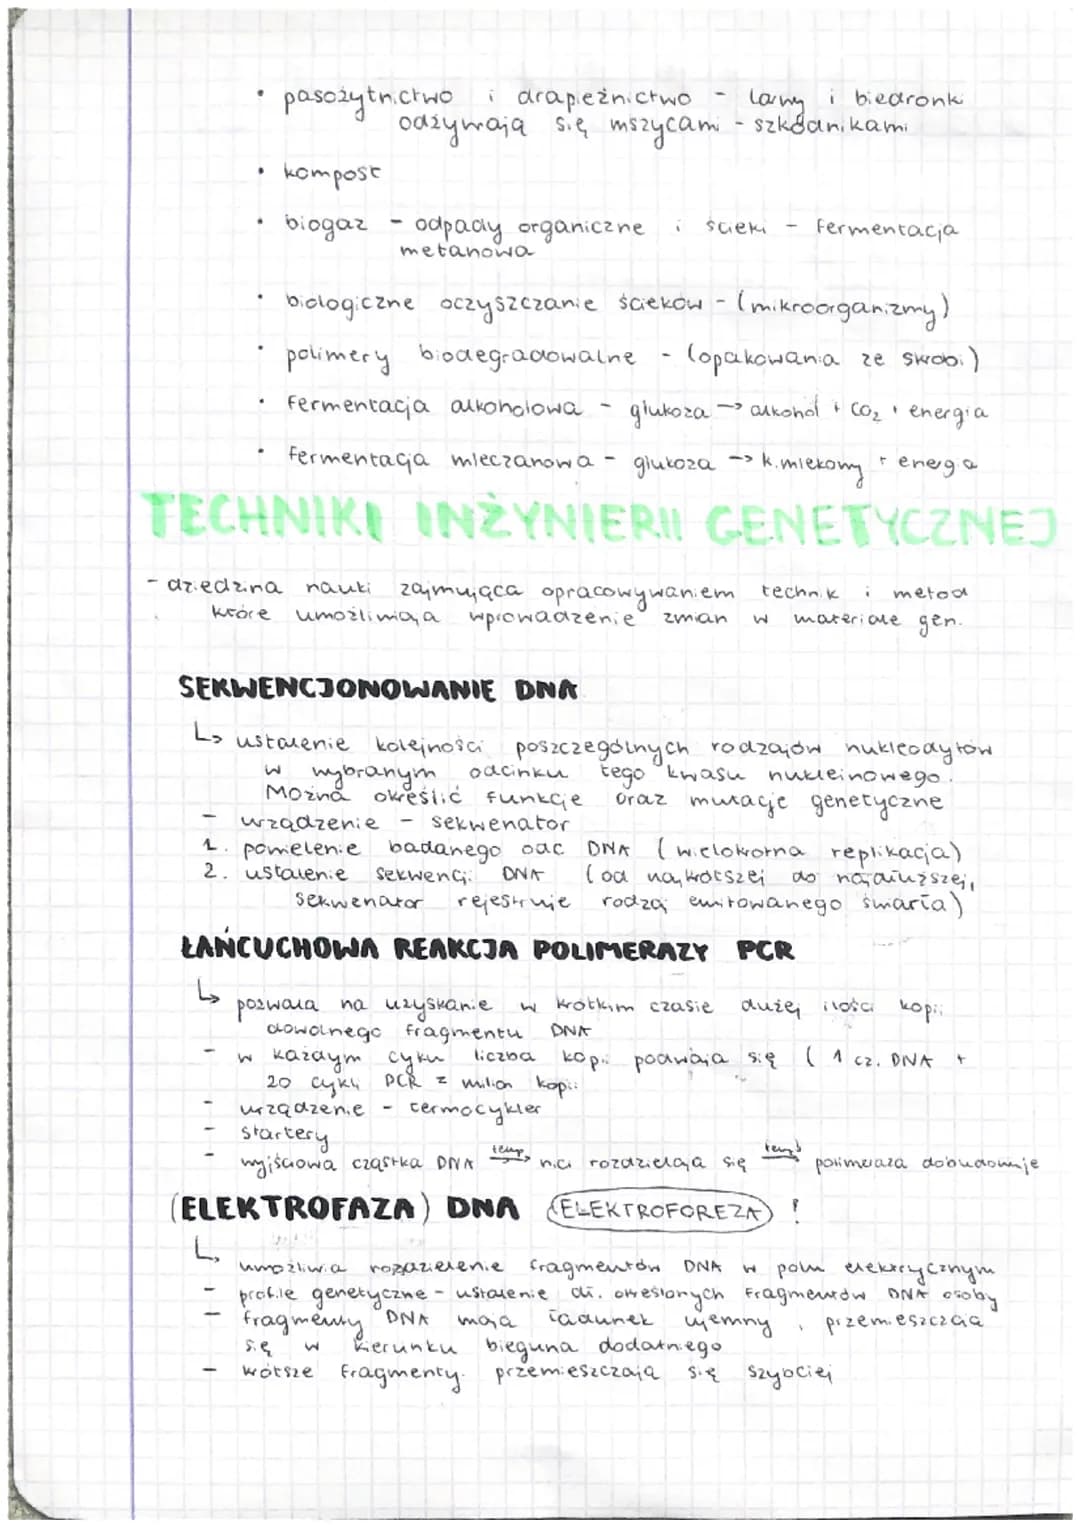 • pasożytnictwo i drapieżnictwo - larwy i biedronki
odżywają się mszycami - szkodnikami
• kompost
• biogaz - odpady organiczne i ścieki - fermentacja
metanowa
• biologiczne oczyszczanie ścieków - (mikroorganizmy)
• polimery biodegradowalne - (opakowania ze skrobi)
• fermentacja alkoholowa - glukoza → alkohol + CO₂ + energia
• fermentacja mleczanowa - glukoza → k.mlekowy + energia
TECHNIKI INŻYNIERII GENETYCZNEJ
- dziedzina nauki zajmująca opracowywaniem technik i metod
które umożliwiają wprowadzenie zmian w materiale gen.
SEKWENCJONOWANIE DNA
↳ ustalenie kolejności poszczególnych rodzajów nukleodytów
w wybranym odcinku tego kwasu nukleinowego.
Można określić funkcje oraz mutacje genetyczne
- urządzenie - sekwenator
1. powielenie badanego odc DNA (wielokrotna replikacja)
2. ustalenie sekwencji DNA (od najkrótszej do najdłuższej,
sekwenator rejestruje rodzaj emitowanego światła)
ŁAŃCUCHOWA REAKCJA POLIMERAZY PCR
↳ pozwala na uzyskanie w krótkim czasie dużej ilości kopii
dowolnego fragmentu DNA
- w każdym cyklu liczba kopii podwaja się (1 cz. DNA +
20 cykli PCR = milion kopii
- urządzenie - termocykler
- startery
- wyjściowa cząstka DNA temp → nici rozdzielają się temp → polimeraza dobudowuje
(ELEKTROFAZA) DNA (ELEKTROFOREZA) !
↳ umożliwia rozdzielenie fragmentów DNA w polu elektrycznym
- profile genetyczne - ustalenie dł. określonych fragmentów DNA osoby
- fragmenty DNA mają ładunek ujemny, przemieszczają
się w kierunku bieguna dodatniego
- krótsze fragmenty przemieszczają się szybciej